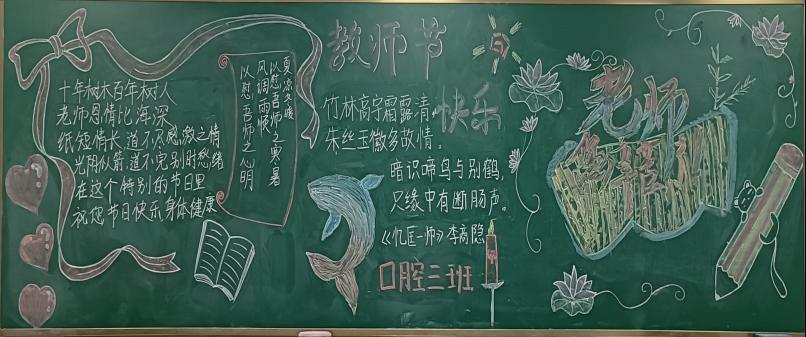 十年树木百年树人
老师恩情比海深
纸短情长,道不尽感激之情
光阴似箭,道不完别时愁绪
在这个特别的节日里
祝您节日快乐身体健康
夏凉冬暖
以慰吾师之寒暑
风调雨顺
以慰吾师之心明
教师节
快乐
竹林高宇霜露清,
朱丝玉徽多故情。
暗识啼鸟与别鹤,
只缘中有断肠声。
《忆匡一师》李商隐
口腔三班
老师